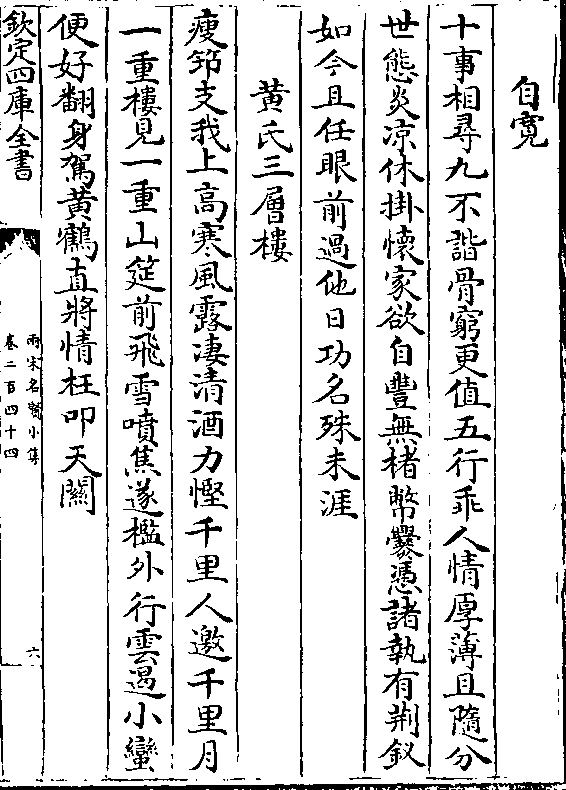 自寛
十事相尋九不諧骨窮更值五行乖人情厚薄且隨分
世態炎凉休掛懷家欲自豐無楮幣爨憑諸執有荆釵
如今且任眼前過他日功名殊未涯
黄氏三層樓
瘦筇支我上高寒風露凄清酒力慳千里人邀千里月
一重樓見一重山筵前飛雪噴焦遂檻外行雲遏小蠻
便好翻身駕黄鶴直將情枉叩天關
欽定四庫全書
兩宋名賢小集
卷二百四十四
六